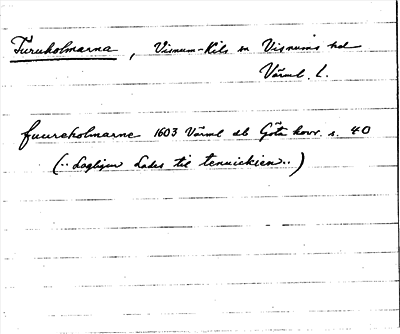 Furuholmarna, Visnum-Kils sn Visnums hd
Värml. L.
fuureholmarne 1603 Värml sb Göta hovr. s. 40
(.. Lagligen Lades til tenuickien..)